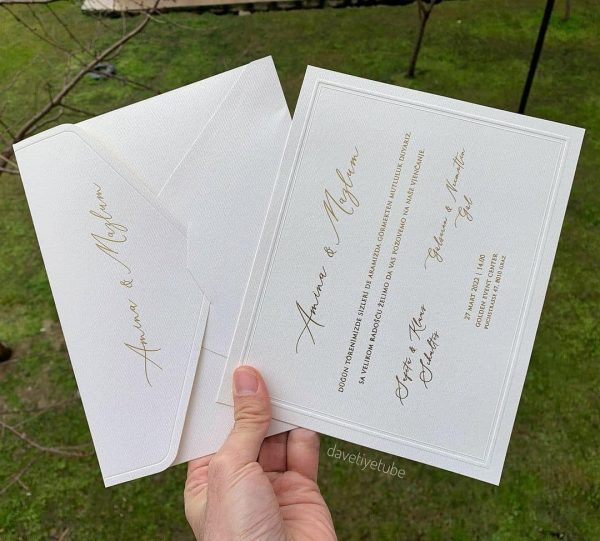 Amina & Mazlum
Amina & Mazlum
DÜĞÜN TÖRENİMİZDE SİZLERİ DE ARAMIZDA GÖRMEKTEN MUTLULUK DUYARIZ
SA VELIKOM RADOŠĆU ŽELIMO DA VAS POZOVEMO NA NAŠE VJENČANJE.
& Klaus
Gülsüm & Nurettin
Gül
27 MART 2022 | 14.00
GOLDEN EVENT CENTER
8010 GRAZ
davetiyetube